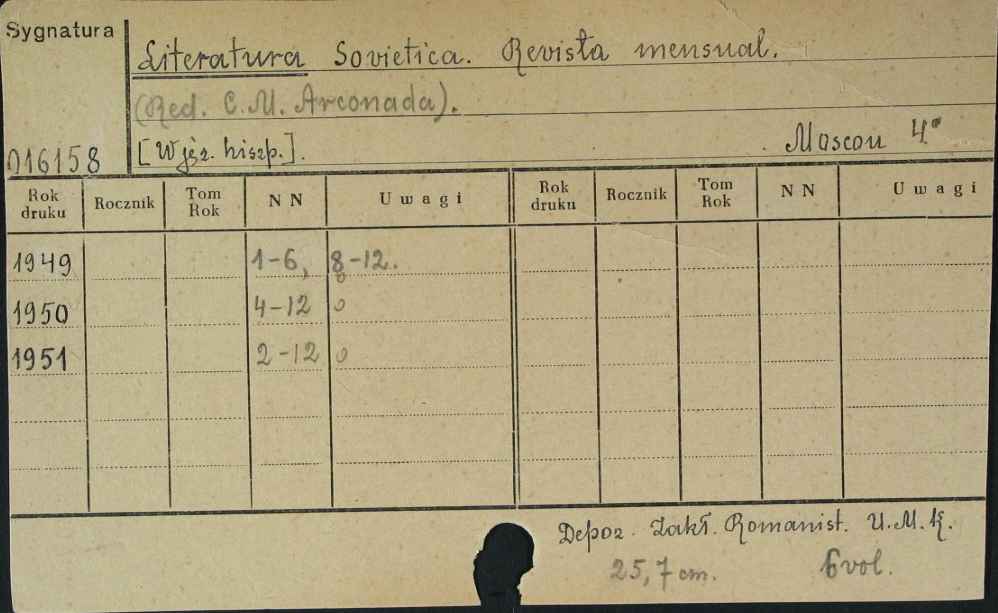 Sygnatura
Literatura Sovietica. Revista mensual.
(Red. C. M. Arconada).
016158 [W jęz. hiszp.]. Moscou 4°
Rok druku Rocznik Tom Rok NN Uwagi Rok druku Rocznik Tom Rok NN Uwagi
1949 1-6, 8-12.
1950 4-12 o
1951 2-12 o
Depoz. Zakł. Romanist. U.M.K.
25,7 cm. 6 vol.